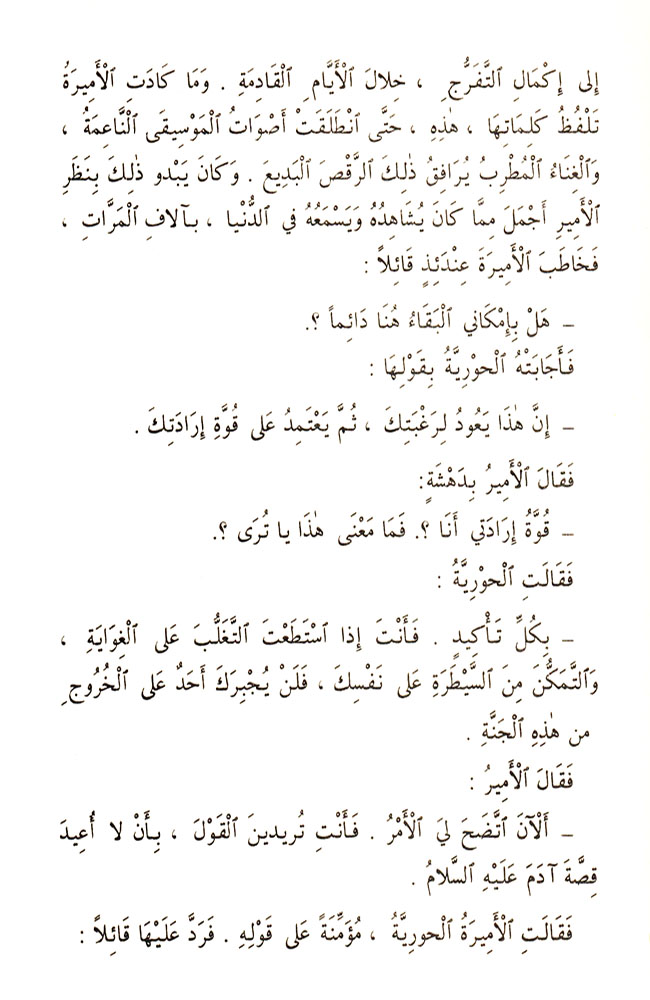 إِلى إِكْمَالِ ٱلتَّفَرُّجِ ، خِلالَ ٱلْأَيَّامِ ٱلْقَادِمَةِ . وَمَا كَادَتِ ٱلْأَمِيرَةُ
تَلْفُظُ كَلِمَاتِهَا ، هٰذِهِ ، حَتَّى ٱنْطَلَقَتْ أَصْوَاتُ ٱلْمَوْسِيقَى ٱلنَّاعِمَةُ ،
وَٱلْغِنَاءُ ٱلْمُطْرِبُ يُرَافِقُ ذٰلِكَ ٱلرَّقْصَ ٱلْبَدِيعَ . وَكَانَ يَبْدو ذٰلِكَ بِنَظَرِ
ٱلْأَمِيرِ أَجْمَلَ مِمَّا كَانَ يُشَاهِدُهُ وَيَسْمَعُهُ في ٱلدُّنْيا ، بِآلافِ ٱلْمَرَّاتِ ،
فَخَاطَبَ ٱلْأَمِيرَةَ عِنْدَئِذٍ قَائِلاً :
– هَلْ بِإِمْكَاني ٱلْبَقَاءُ هُنَا دَائِماً ؟.
فَأَجَابَتْهُ ٱلْحوْرِيَّةُ بِقَوْلِهَا :
– إِنَّ هٰذَا يَعُودُ لِرَغْبَتِكَ ، ثُمَّ يَعْتَمِدُ عَلى قُوَّةِ إِرَادَتِكَ .
فَقَالَ ٱلْأَمِيرُ بِدَهْشَةٍ:
– قُوَّةُ إِرَادَتي أَنَا ؟. فَمَا مَعْنَى هٰذَا يا تُرَى ؟.
فَقَالَتِ ٱلْحوْرِيَّةُ :
– بِكُلِّ تَأْكِيدٍ . فَأَنْتَ إِذا ٱسْتَطَعْتَ ٱلتَّغَلُّبَ عَلى ٱلْغِوَايَةِ ،
وَٱلتَّمَكُّنَ مِنَ ٱلسَّيْطَرَةِ عَلى نَفْسِكَ ، فَلَنْ يُجْبِرَكَ أَحَدٌ عَلى ٱلْخُرُوجِ
من هٰذِهِ ٱلْجَنَّةِ .
فَقَالَ ٱلْأَمِيرُ :
– أَلْآنَ ٱتَّضَحَ لِيَ ٱلْأَمْرُ . فَأَنْتِ تُريدينَ ٱلْقَوْلَ ، بِأَنْ لا أُعِيدَ
قِصَّةَ آدَمَ عَلَيْهِ ٱلسَّلامُ .
فَقَالَتِ ٱلْأَمِيرَةُ ٱلْحورِيَّةُ ، مُؤَمِّنَةً عَلى قَوْلِهِ . فَرَدَّ عَلَيْهَا قَائِلاً :